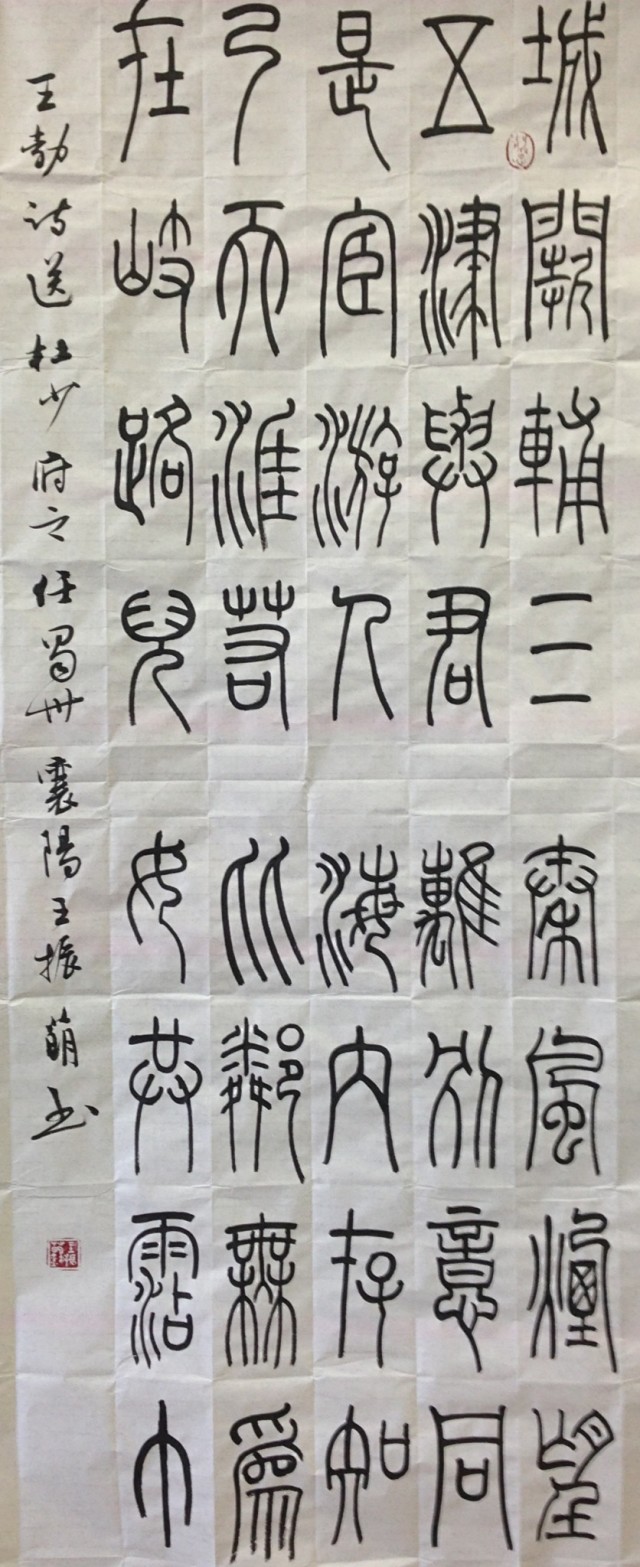 城闕輔三秦風煙望
五津與君離別意同
是宦游人海內存知
己天涯若比鄰無為
在岐路兒女共霑巾
王勃诗送杜少府之任蜀州襄陽王振萌书